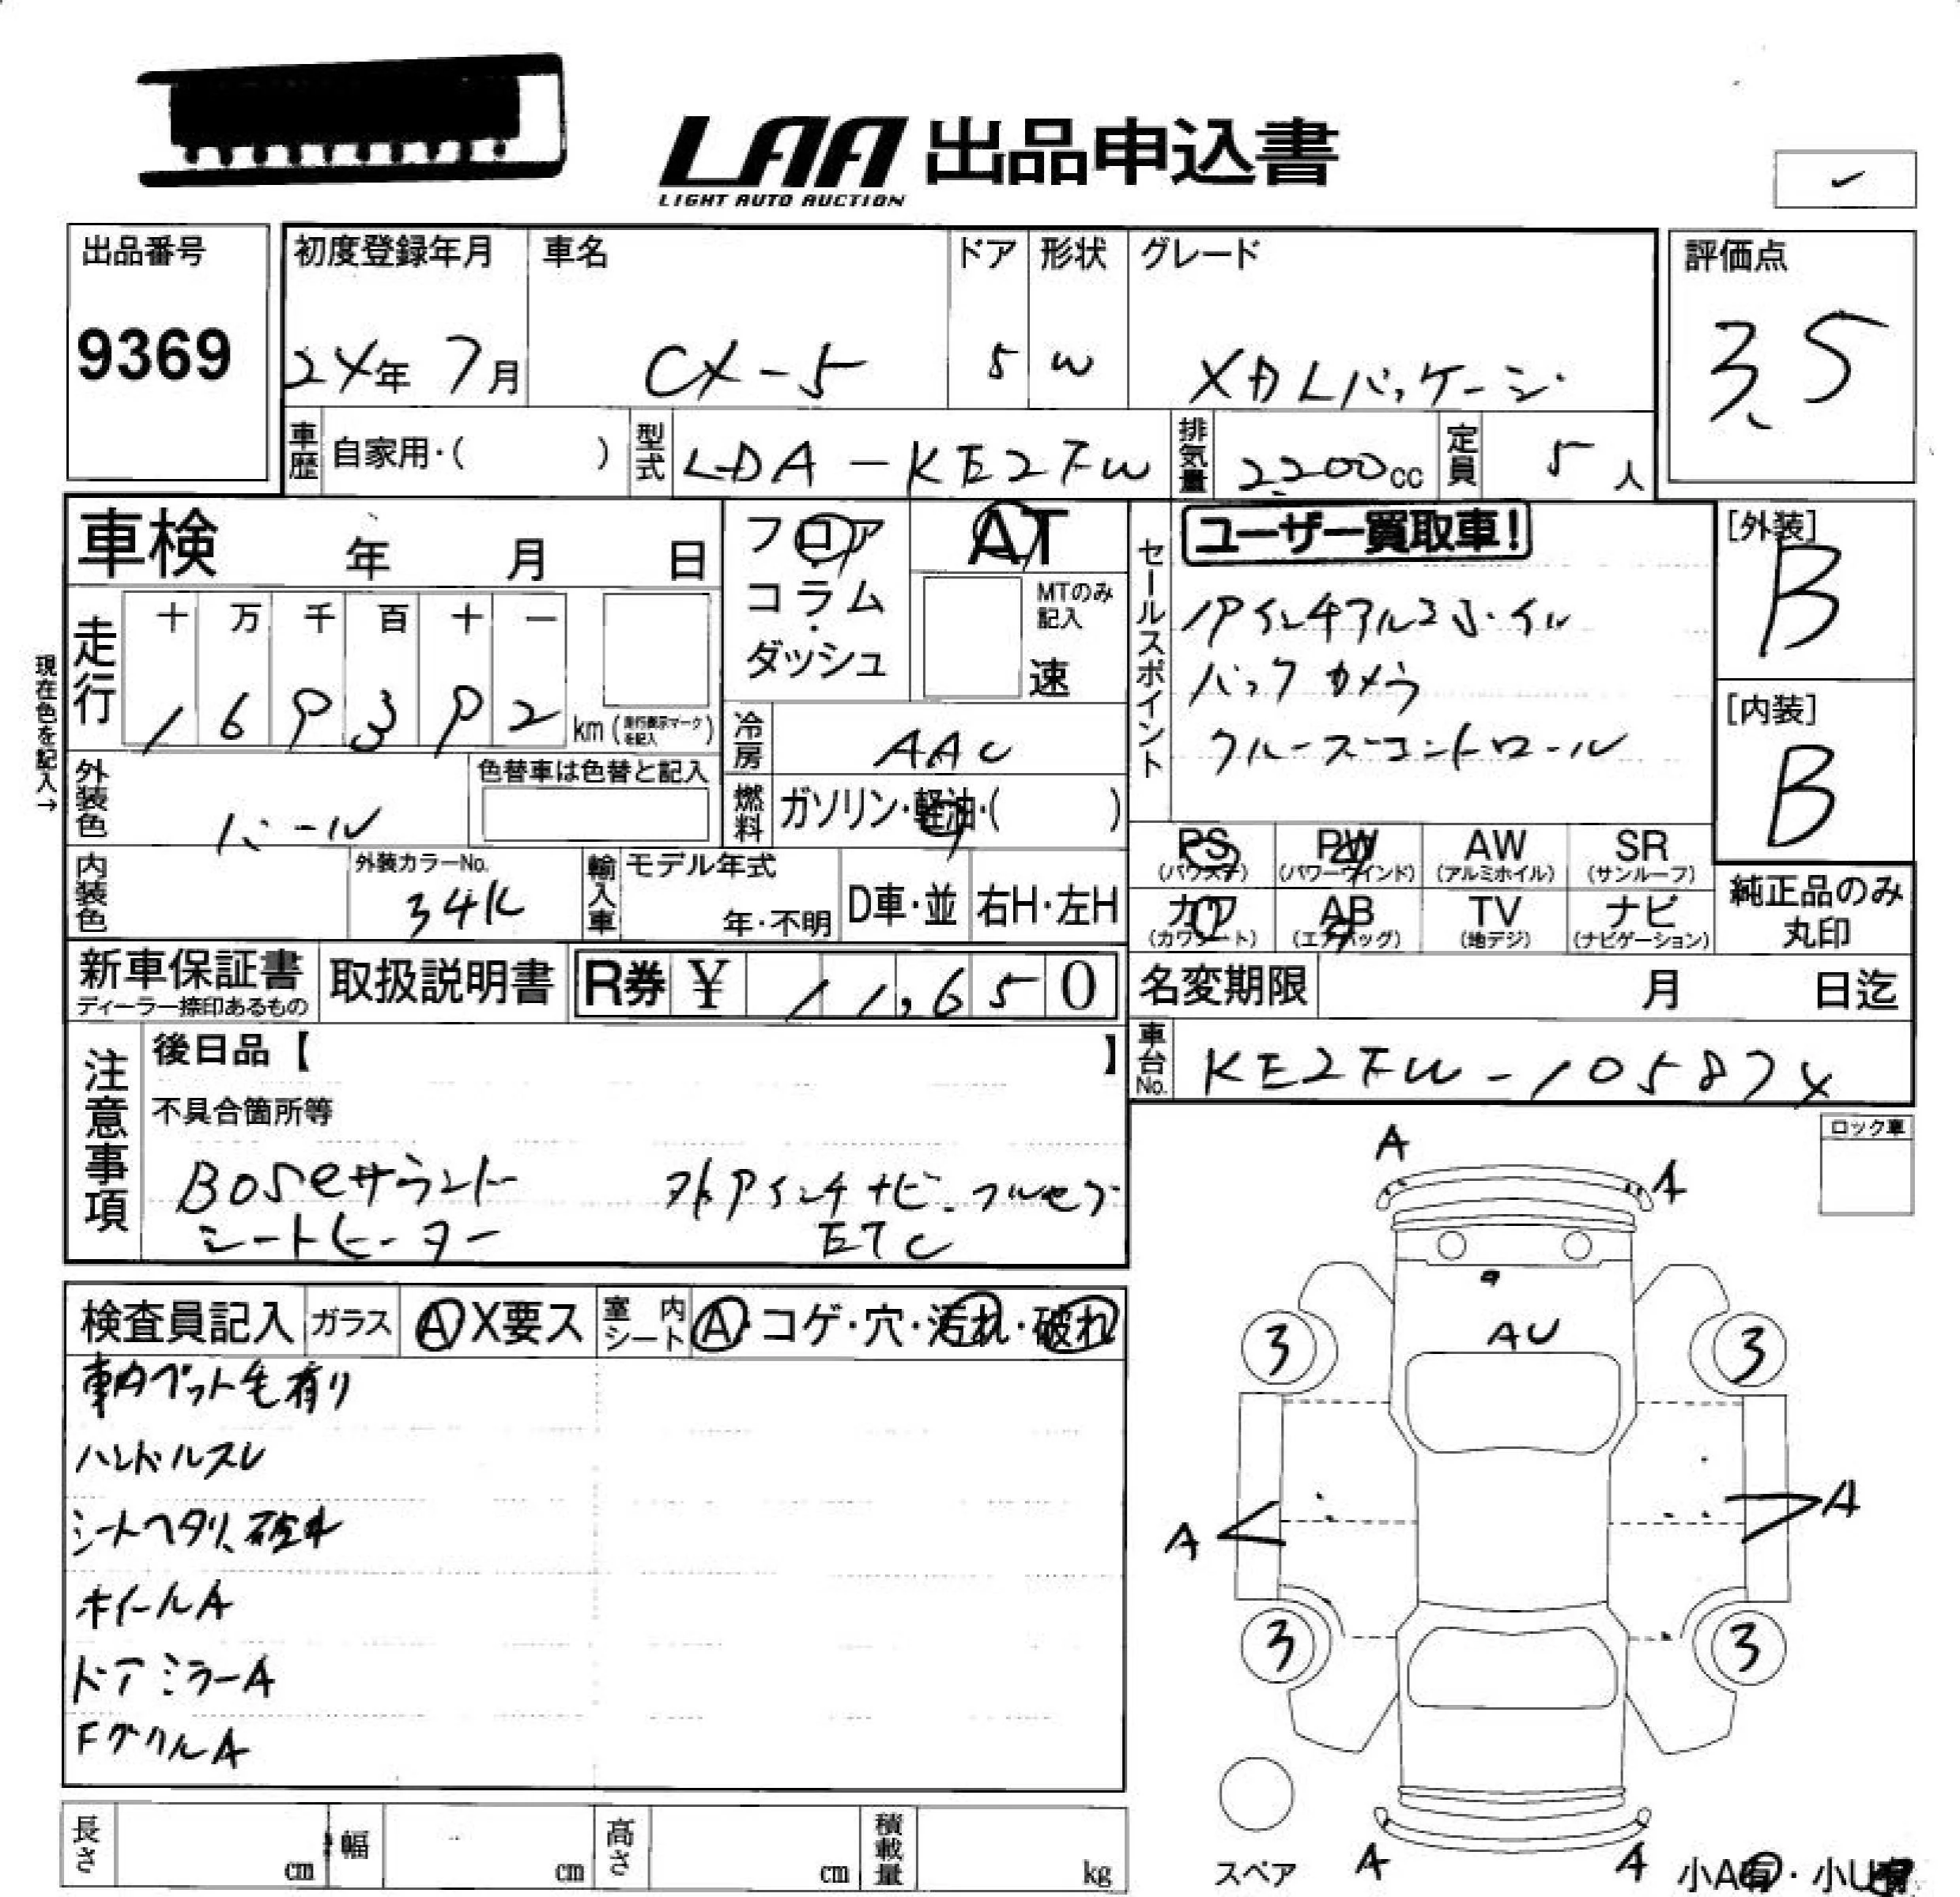 LAA 出品申込書
LIGHT AUTO AUCTION
出品番号
9369
初度登録年月
24年 7月
車名
CX-5
ドア
5
形状
W
グレード
XD Lパッケージ
評価点
3.5
車歴
自家用・( )
型式
LDA-KE2FW
排気量
2,200cc
定員
5人
車検 年 月 日
フロア
・
コラム
・
ダッシュ
AT
MTのみ
記入
速
セールスポイント
ユーザー買取車!
19インチアルミホイル
バックカメラ
クルーズコントロール
[外装]
B
[内装]
B
現在色を記入→
走行
十 万 千 百 十 一
1 6 9 3 9 2
km (走行表示マークを記入)
冷房
AAC
燃料
ガソリン・軽油・( )
外装色
パール
色替車は色替と記入
内装色
外装カラーNo.
34K
輸入車
モデル年式
年・不明
D車・並
右H・左H
PS
(パワステ)
PW
(パワーウインド)
AW
(アルミホイル)
SR
(サンルーフ)
カワ
(カワシート)
AB
(エアバッグ)
TV
(地デジ)
ナビ
(ナビゲーション)
純正品のみ
丸印
新車保証書
ディーラー捺印あるもの
取扱説明書
R券 ¥ 11,650
名変期限 月 日迄
車台No.
KE2FW-105874
注意事項
後日品【 】
不具合箇所等
BOSEサウンド
ナビ フルセグ
シートヒーター
ETC
ロック車
検査員記入
ガラス
A X要ス
室内
シート
A・コゲ・穴・汚れ・破れ
車内ペット毛有り
ハンドルスレ
シートヘタリ、破れ
ホイールA
ドアミラーA
FグリルA
A
A
AU
3
3
A
A
3
3
スペア
A
A
小A有・小U有
長さ
cm
幅
cm
高さ
cm
積載量
kg